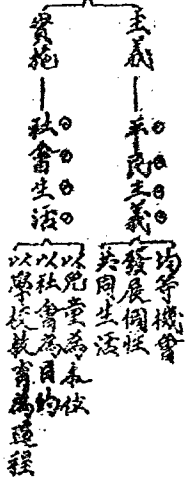 主義——平民主義
均等機會
發展個性
共同生活
實施——社會生活
以兒童為本位
以社會為目的
以學校教育為過程